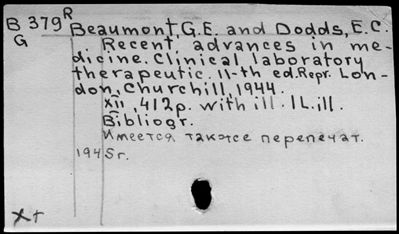 B 379 R Beaumont, G.E. and Dodds, E.C.
G Recent advances in me-
dicine. Clinical laboratory
therapeutic. 11-th ed. Repr. Lon-
don, Churchill, 1944.
XII, 412 p. with ill. 1 L. ill.
Bibliogr.
Имеется также перепечат.
1945 г.
X +